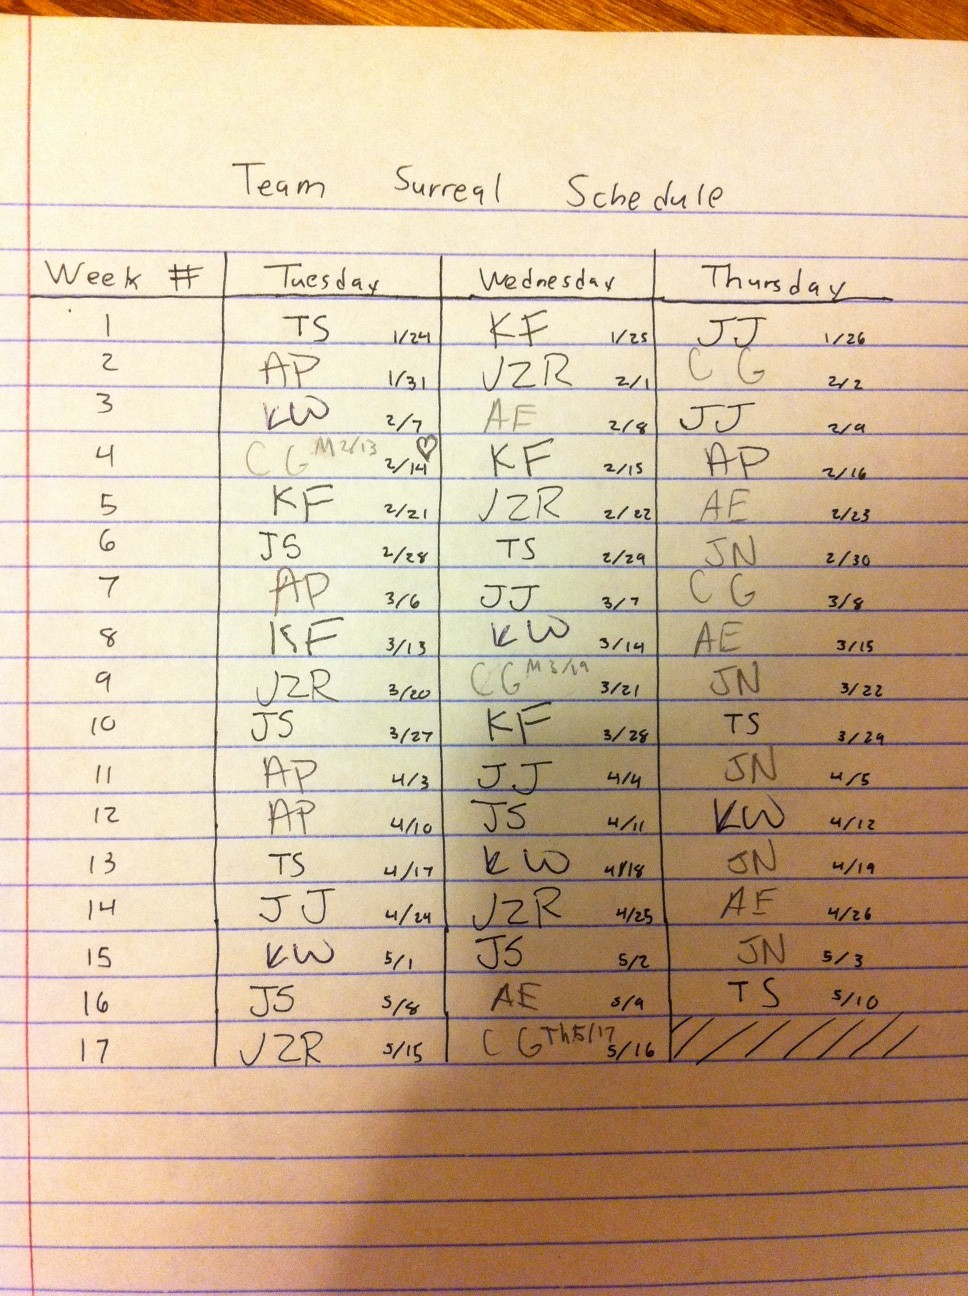 Team Surreal Schedule
Week # Tuesday Wednesday Thursday
1 TS 1/24 KF 1/25 JJ 1/26
2 AP 1/31 JZR 2/1 CG 2/2
3 KW 2/7 AE 2/8 JJ 2/9
4 CG M 2/13 2/14 KF 2/15 AP 2/16
5 KF 2/21 JZR 2/22 AE 2/23
6 JS 2/28 TS 2/29 JN 2/30
7 AP 3/6 JJ 3/7 CG 3/8
8 KF 3/13 KW 3/14 AE 3/15
9 JZR 3/20 CG M 3/19 3/21 JN 3/22
10 JS 3/27 KF 3/28 TS 3/29
11 AP 4/3 JJ 4/4 JN 4/5
12 AP 4/10 JS 4/11 KW 4/12
13 TS 4/17 KW 4/18 JN 4/19
14 JJ 4/24 JZR 4/25 AE 4/26
15 KW 5/1 JS 5/2 JN 5/3
16 JS 5/8 AE 5/9 TS 5/10
17 JZR 5/15 CG Th 5/17 5/16